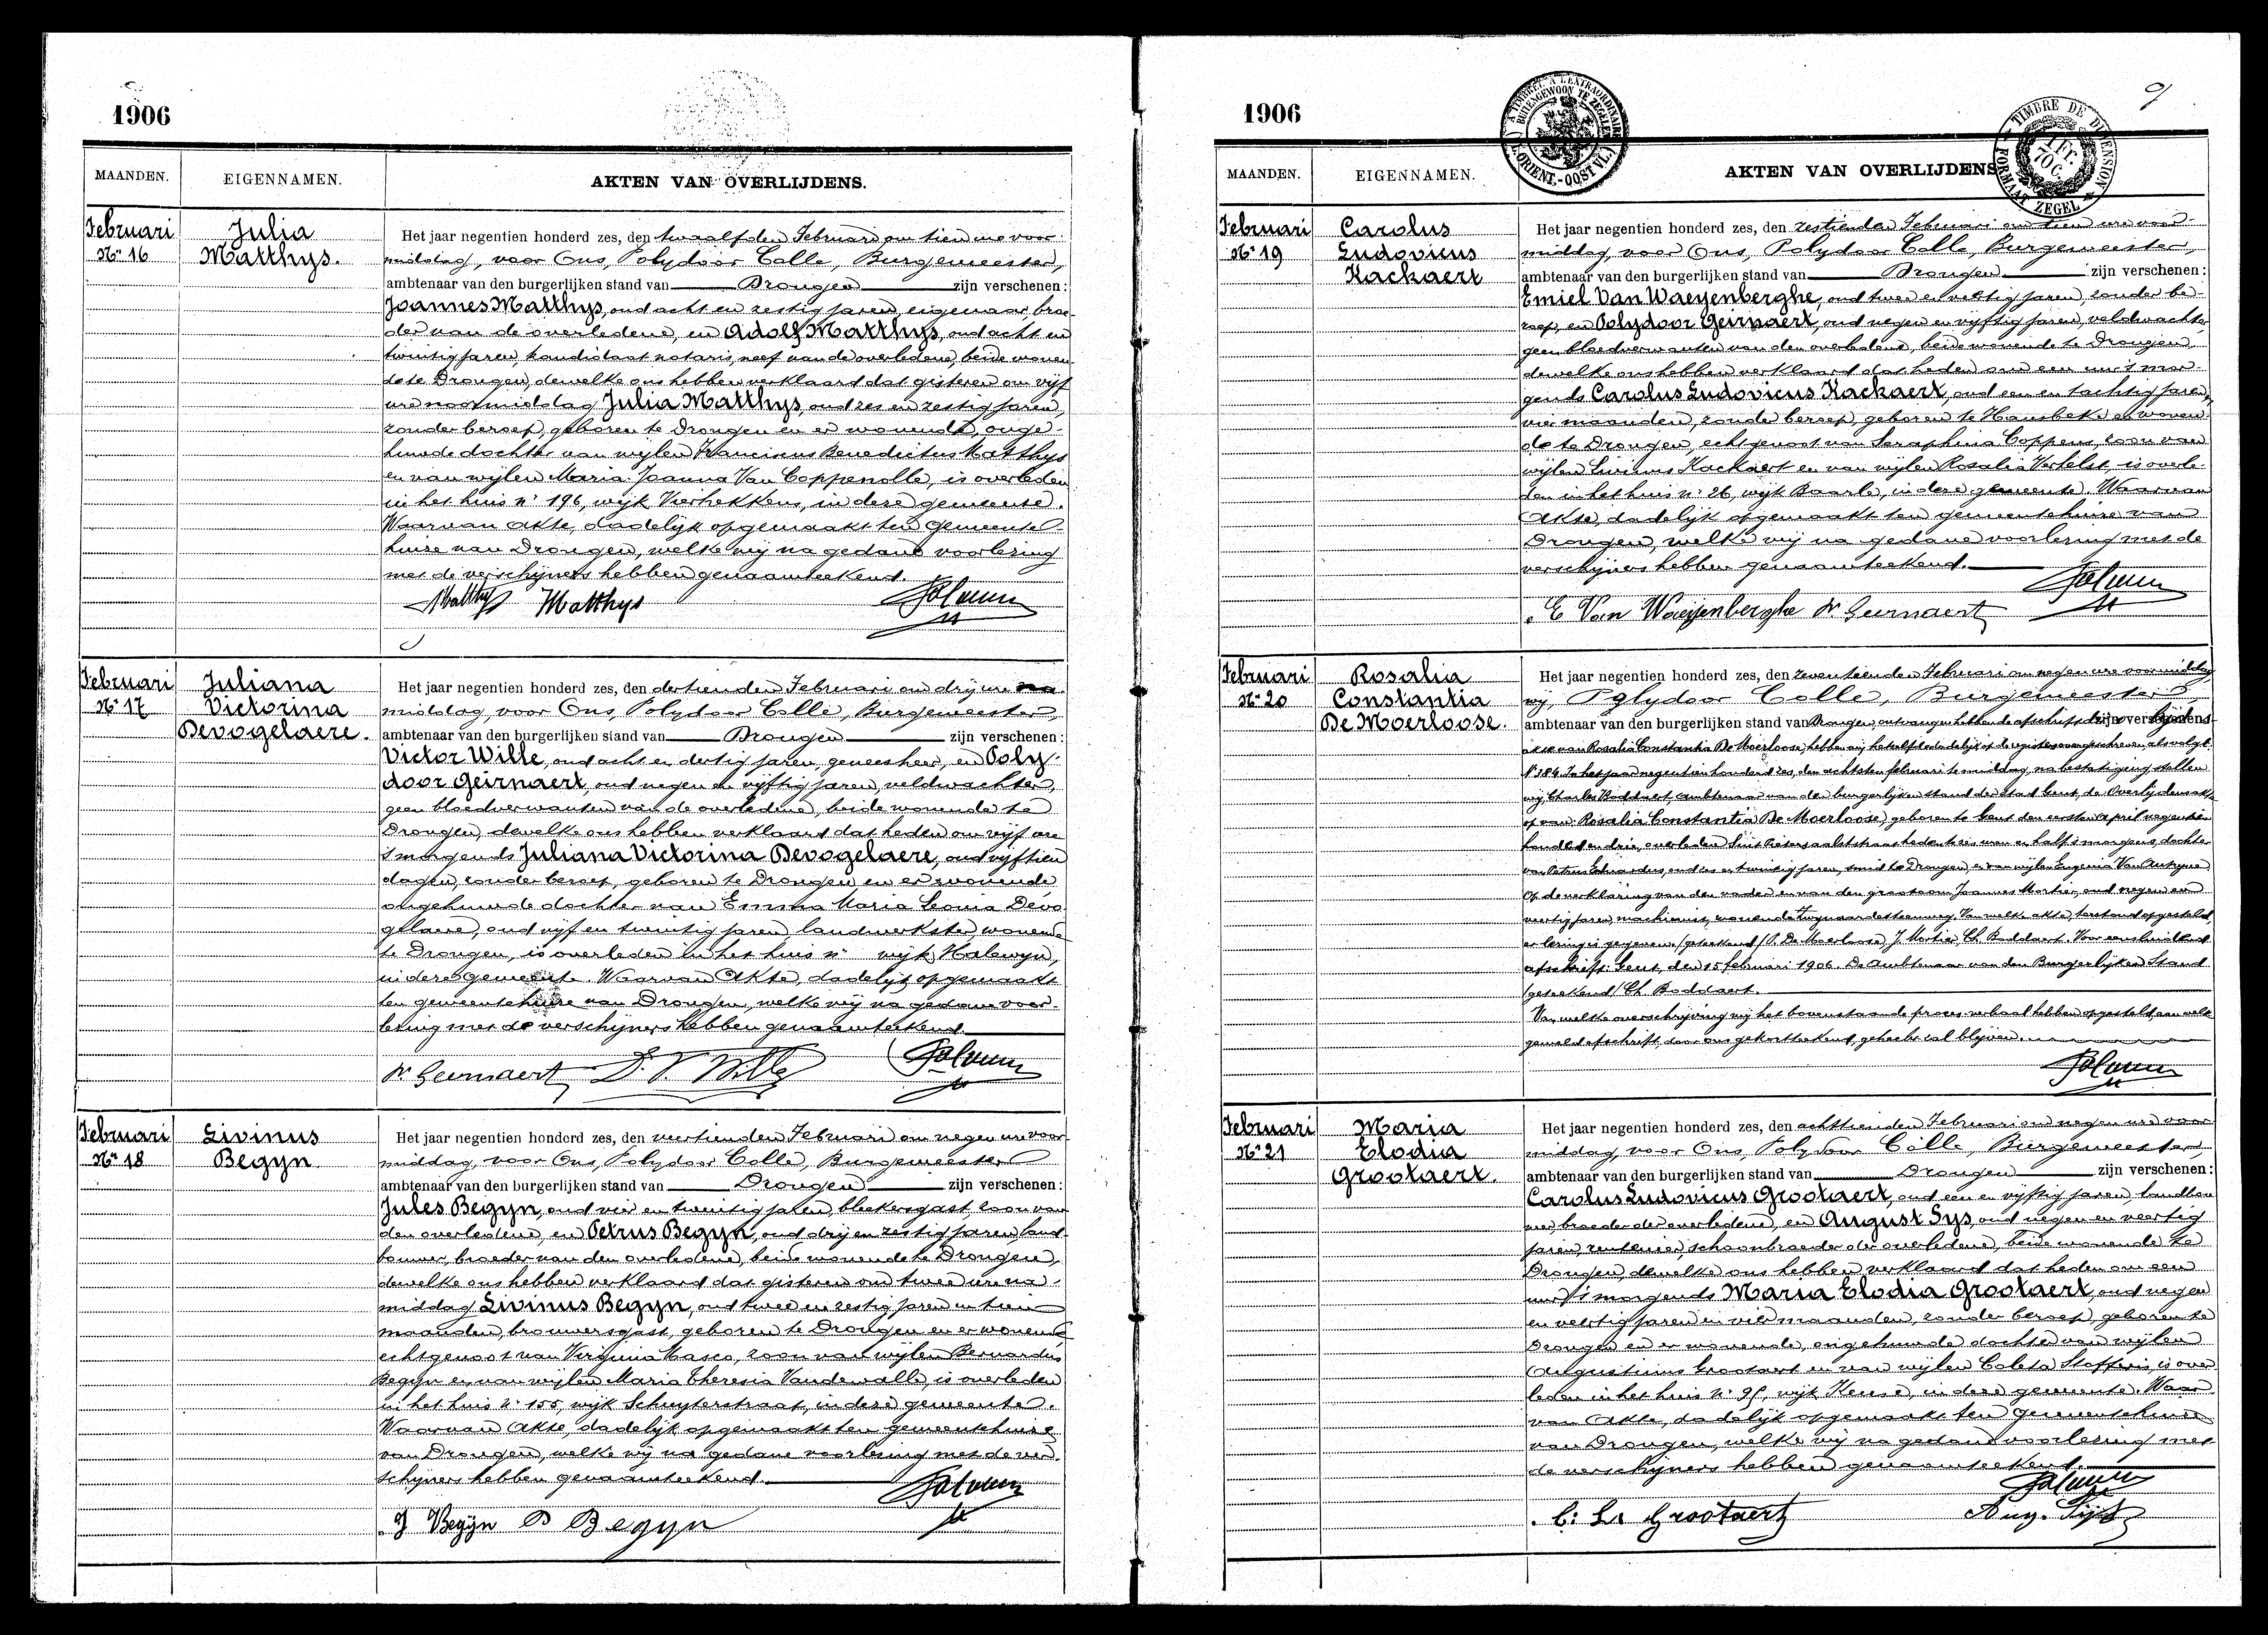 1906
MAANDEN. EIGENNAMEN. AKTEN VAN OVERLIJDENS.
Februari
Nr 16
Julia
Matthys.
Het jaar negentien honderd zes, den twaalfden Februari om tien ure voor
middag, voor Ons, Polydoor Colle, Burgemeester,
ambtenaar van den burgerlijken stand van Drongen zijn verschenen:
Joannes Matthys, oud acht en zestig jaren, eigenaar, broe
der van de overledene, en Adolf Matthys, oud acht en
twintig jaren, kandidaat notaris, neef van de overledene, beide wonen
de te Drongen, dewelke ons hebben verklaard dat gisteren om vijf
ure namiddag Julia Matthys oud zes en zestig jaren,
zonder beroep, geboren te Drongen en er wonende, onge
huwde dochter van wijlen Franciscus Benedictus Matthys
en van wijlen Maria Joanna Van Coppenolle, is overleden
in het huis nr 196, wijk Vierhekkens, in deze gemeente.
Waarvan Akte, dadelijk opgemaakt ten gemeente
huize van Drongen, welke wij na gedane voorlezing
met de verschijners hebben genaamteekend.
Matthys Matthys
Februari
Nr 17
Juliana
Victorina
Devogelaere.
Het jaar negentien honderd zes, den dertienden Februari om drij ure na
middag, voor Ons, Polydoor Colle, Burgemeester,
ambtenaar van den burgerlijken stand van Drongen zijn verschenen:
Victor Wille, oud acht en dertig jaren, geneesheer, en Poly
door Geirnaert, oud negen en vijftig jaren, veldwachter,
geen bloedverwanten van de overledene, beide wonende te
Drongen, dewelke ons hebben verklaard dat heden om vijf ure
's morgends Juliana Victorina Devogelaere, oud vijftien
dagen, zonder beroep, geboren te Drongen en er wonende
ongehuwde dochter van Emma Maria Leonia Devo
gelaere, oud vijf en twintig jaren landwerkster, wonende
te Drongen, is overleden in het huis nr wijk Halewyn,
in deze gemeente. Waarvan Akte, dadelijk opgemaakt
ten gemeentehuize van Drongen, welke wij na gedane voor
lezing met de verschijners hebben genaamteekend
P. Geirnaert Dr. V. Wille
Februari
Nr 18
Livinus
Begyn
Het jaar negentien honderd zes, den veertienden Februari om negen ure voor
middag, voor Ons, Polydoor Colle, Burgemeester
ambtenaar van den burgerlijken stand van Drongen zijn verschenen:
Jules Begyn, oud vier en twintig jaren, bleekersgast, zoon van
den overledene, en Petrus Begyn, oud drij en zestig jaren, land
bouwer, broeder van den overledene, beide wonende te Drongen,
dewelke ons hebben verklaard dat gisteren om twee ure na
middag Livinus Begyn, oud twee en zestig jaren en tien
maanden, brouwersgast, geboren te Drongen en er wonende
echtgenoot van Virginia Masco, zoon van wijlen Bernardus
Begyn en van wijlen Maria Theresia Vandewalle, is overleden
in het huis nr 155, wijk Schuyterstraat, in deze gemeente.
Waarvan Akte, dadelijk opgemaakt ten gemeentehuize
van Drongen, welke wij na gedane voorlezing met de ver
schijners hebben genaamteekend.
J Begyn P Begyn
1906
9
A TIMBRER A L'EXTRAORDINAIRE
BUITENGEWOON TE ZEGELEN
(FL. ORIENT.-OOST VL.)
TIMBRE DE DIMENSION
1 Fr. 70 C.
FORMAAT ZEGEL
MAANDEN. EIGENNAMEN. AKTEN VAN OVERLIJDENS
Februari
Nr 19
Carolus
Ludovicus
Kackaert
Het jaar negentien honderd zes, den zestienden Februari om tien ure voor
middag, voor Ons, Polydoor Colle, Burgemeester,
ambtenaar van den burgerlijken stand van Drongen zijn verschenen:
Emiel Van Waeyenberghe, oud twee en veertig jaren, zonder be
roep, en Polydoor Geirnaert, oud negen en vijftig jaren, veldwachter
geen bloedverwanten van den overledene, beide wonende te Drongen,
dewelke ons hebben verklaard dat heden om een ure 's mor
gends Carolus Ludovicus Kackaert, oud een en tachtig jaren,
vier maanden, zonder beroep, geboren te Hansbeke en wonen
de te Drongen, echtgenoot van Seraphina Coppens, zoon van
wijlen Livinus Kackaert en van wijlen Rosalia Verhelst, is overle
den in het huis nr 26, wijk Baarle, in deze gemeente. Waarvan
Akte, dadelijk opgemaakt ten gemeentehuize van
Drongen, welke wij na gedane voorlezing met de
verschijners hebben genaamteekend.
E Van Waeyenberghe P. Geirnaert
Februari
Nr 20
Rosalia
Constantia
De Moerloose.
Het jaar negentien honderd zes, den zeventienden Februari om negen ure voormiddag
wij, Polydoor Colle, Burgemeester,
ambtenaar van den burgerlijken stand van Drongen, ontvangen hebbende afschrift der overlijdens
akte van Rosalia Constantia De Moerloose, hebben wij hetzelfde dadelijk op de registers overgeschreven als volgt
Nr 284. In het jaar negentien honderd zes, den achtsten februari te middag, na bestatiging stellen
wij, Charles Boddaert, ambtenaar van den burgerlijken stand der stad Gent, de Overlijdensakte
op van Rosalia Constantia De Moerloose, geboren te Gent den eersten April negentien
honderd en drie, overleden Sint Pietersaalststraat heden te zes uren en half 's morgens, dochter
van Petrus Eduardus, oud zes en twintig jaren, smid te Drongen, en van wijlen Eugenia Van
Op de verklaring van den vader en van den grootoom Joannes Mortier, oud negen en
veertig jaren, machinist, wonende Van welke akte, terstond opgesteld,
er lezing is gegeven. (geteekend) P. De Moerloose, J. Mortier, Ch. Boddaert. Voor eensluidend
afschrift: Gent, den 15 februari 1906. De Ambtenaar van den Burgerlijken Stand
(geteekend) Ch. Boddaert.
Van welke overschrijving wij het bovenstaande proces-verbaal hebben opgesteld, aan welk
gemeld afschrift door ons gekortteekend, gehecht zal blijven.
Februari
Nr 21
Maria
Elodia
Grootaert.
Het jaar negentien honderd zes, den achttienden Februari om negen ure voor
middag, voor Ons, Polydoor Colle, Burgemeester,
ambtenaar van den burgerlijken stand van Drongen zijn verschenen:
Carolus Ludovicus Grootaert, oud een en vijftig jaren, landbou
wer, broeder der overledene, en August Sys, oud negen en veertig
jaren, rentenier, schoonbroeder der overledene, beide wonende te
Drongen, dewelke ons hebben verklaard dat heden om een
ure 's morgends Maria Elodia Grootaert, oud negen
en veertig jaren en vier maanden, zonder beroep, geboren te
Drongen en er wonende, ongehuwde dochter van wijlen
Augustinus Grootaert en van wijlen Coleta Stofferis, is over
leden in het huis nr 95, wijk Keuze, in deze gemeente. Waar
van Akte, dadelijk opgemaakt ten gemeentehuize
van Drongen, welke wij na gedane voorlezing met
de verschijners hebben genaamteekend.
C. L. Grootaert Aug. Sys